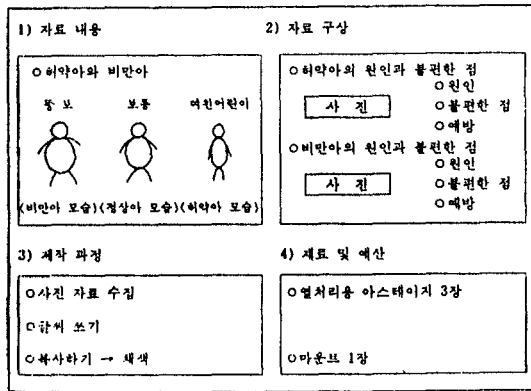 1) 자료 내용
○허약아와 비만아
뚱보 보통 여윈어린이
(비만아 모습)(정상아 모습)(허약아 모습)
2) 자료 구상
○허약아의 원인과 불편한 점
○원인
사 진
○불편한 점
○예방
○비만아의 원인과 불편한 점
○원인
사 진
○불편한 점
○예방
3) 제작 과정
○사진 자료 수집
○글씨 쓰기
○복사하기 → 채색
4) 재료 및 예산
○열처리용 아스테이지 3장
○마운트 1장